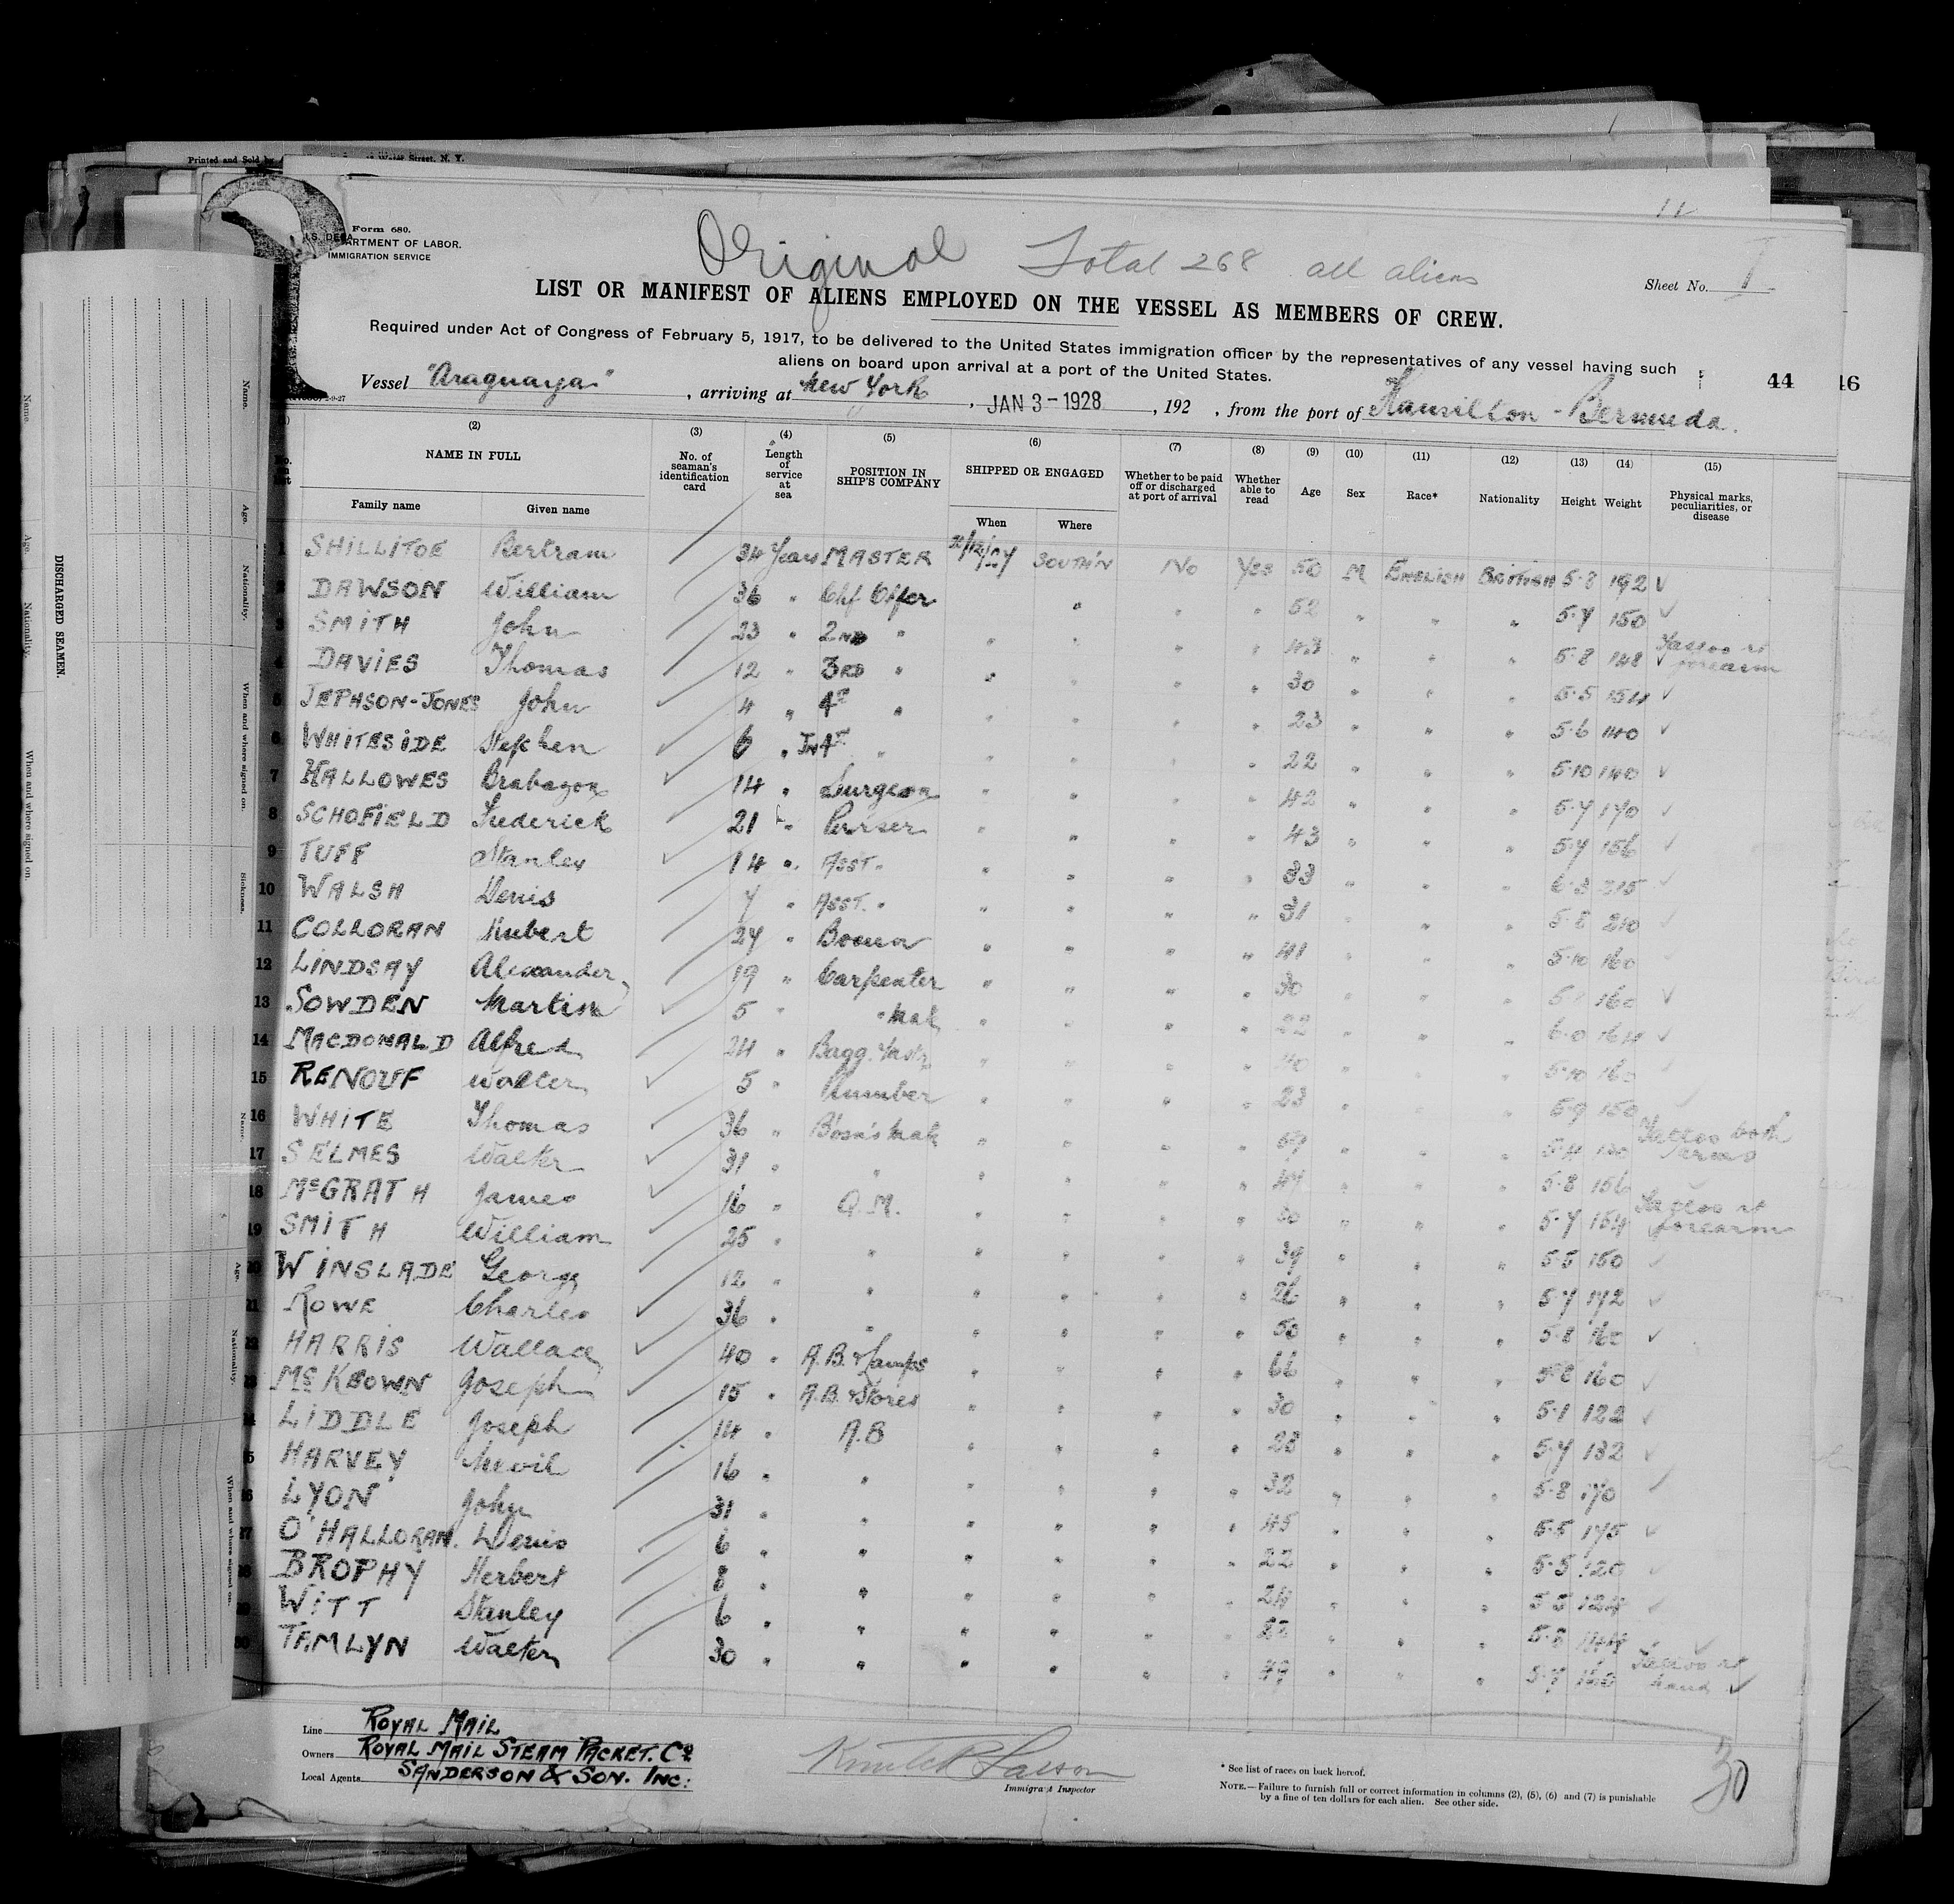 Printed and Sold by Water Street, N. Y.
Form 680.
DEPARTMENT OF LABOR.
IMMIGRATION SERVICE
Original Total 268 all aliens
Sheet No. I
LIST OR MANIFEST OF ALIENS EMPLOYED ON THE VESSEL AS MEMBERS OF CREW.
Required under Act of Congress of February 5, 1917, to be delivered to the United States immigration officer by the representatives of any vessel having such
aliens on board upon arrival at a port of the United States.
44 46
Vessel "Araguaya" , arriving at New York , JAN 3-1928 , 192 , from the port of Hamilton - Bermuda.
(2) (3) (4) (5) (6) (7) (8) (9) (10) (11) (12) (13) (14) (15)
NAME IN FULL No. of seaman's identification card Length of service at sea POSITION IN SHIP'S COMPANY SHIPPED OR ENGAGED Whether to be paid off or discharged at port of arrival Whether able to read Age Sex Race* Nationality Height Weight Physical marks, peculiarities, or disease
Family name Given name When Where
1 SHILLITOE Bertram 34 Years MASTER SOUTH'N No Yes 50 M ENGLISH BRITISH 5·8 192
2 DAWSON William 36 " Chf Offer " " " 52 " " " 5·7 150
3 SMITH John 23 " 2ND " " " " " 43 " " " 5·8 148 Tattoo rt forearm
4 DAVIES Thomas 12 " 3RD " " " " " 30 " " " 5·5 154
5 JEPHSON-JONES John 4 " 4T " " " " " 23 " " " 5·6 140
6 WHITESIDE Stephen 6 " Jn 4T " " " " " 22 " " " 5·10 140
7 HALLOWES Brabazon 14 " Surgeon " " " " 42 " " " 5·7 170
8 SCHOFIELD Frederick 21 " Purser " " " " 43 " " " 5·7 156
9 TUFF Stanley 14 " ASST. " " " " " 33 " " " 6·3 215
10 WALSH Denis 7 " ASST. " " " " " 31 " " " 5·8 210
11 COLLORAN Hubert 24 " Bosun " " " " 41 " " " 5·10 160
12 LINDSAY Alexander 19 " Carpenter " " " " 30 " " " 160
13 SOWDEN Martin 5 " " Mate " " " " 22 " " " 6·0 164
14 MACDONALD Alfred 24 " Bagg. Mastr " " " " 40 " " " 5·10 160
15 RENOUF Walter 5 " Plumber " " " " 23 " " " 5·9 150
16 WHITE Thomas 36 " Bosn's Mate " " " " " " " 5·4 Tattoo both arms
17 SELMES Walter 31 " " " " " " 47 " " " 5·8 156
18 McGRATH James 16 " Q.M. " " " " 30 " " " 5·7 154 Tattoo rt forearm
19 SMITH William 25 " " " " " " 39 " " " 5·5 150
20 WINSLADE George 12 " " " " " " 26 " " " 5·7 172
21 ROWE Charles 36 " " " " " " 50 " " " 5·8 160
22 HARRIS Wallace 40 " A.B. & Lamps " " " " 66 " " " 5·8 160
23 McKEOWN Joseph 15 " A.B. & Stores " " " " 30 " " " 5·1 122
24 LIDDLE Joseph 14 " A.B " " " " 28 " " " 5·7 132
25 HARVEY Nevil 16 " " " " " " 32 " " " 5·8 170
26 LYON John 31 " " " " " " 45 " " " 5·5 175
27 O'HALLORAN. Denis 6 " " " " " " 22 " " " 5·5 120
28 BROPHY Herbert 8 " " " " " " 24 " " " 5·5 124
29 WITT Stanley 6 " " " " " " " " " 5·8
30 TAMLYN Walter 30 " " " " " " 49 " " " 5·7 160 Tattoo rt hand
Line ROYAL MAIL
Owners ROYAL MAIL STEAM PACKET. Co
Local Agents SANDERSON & SON. INC:
Immigrant Inspector
* See list of races on back hereof.
NOTE.—Failure to furnish full or correct information in columns (2), (5), (6) and (7) is punishable
by a fine of ten dollars for each alien. See other side.
30
DISCHARGED SEAMEN.
Name.
Age.
Nationality.
When and where signed on.
Name.
Age.
Nationality.
When and where signed on.
Sickness.
Name.
Age.
Nationality.
When and where signed on.